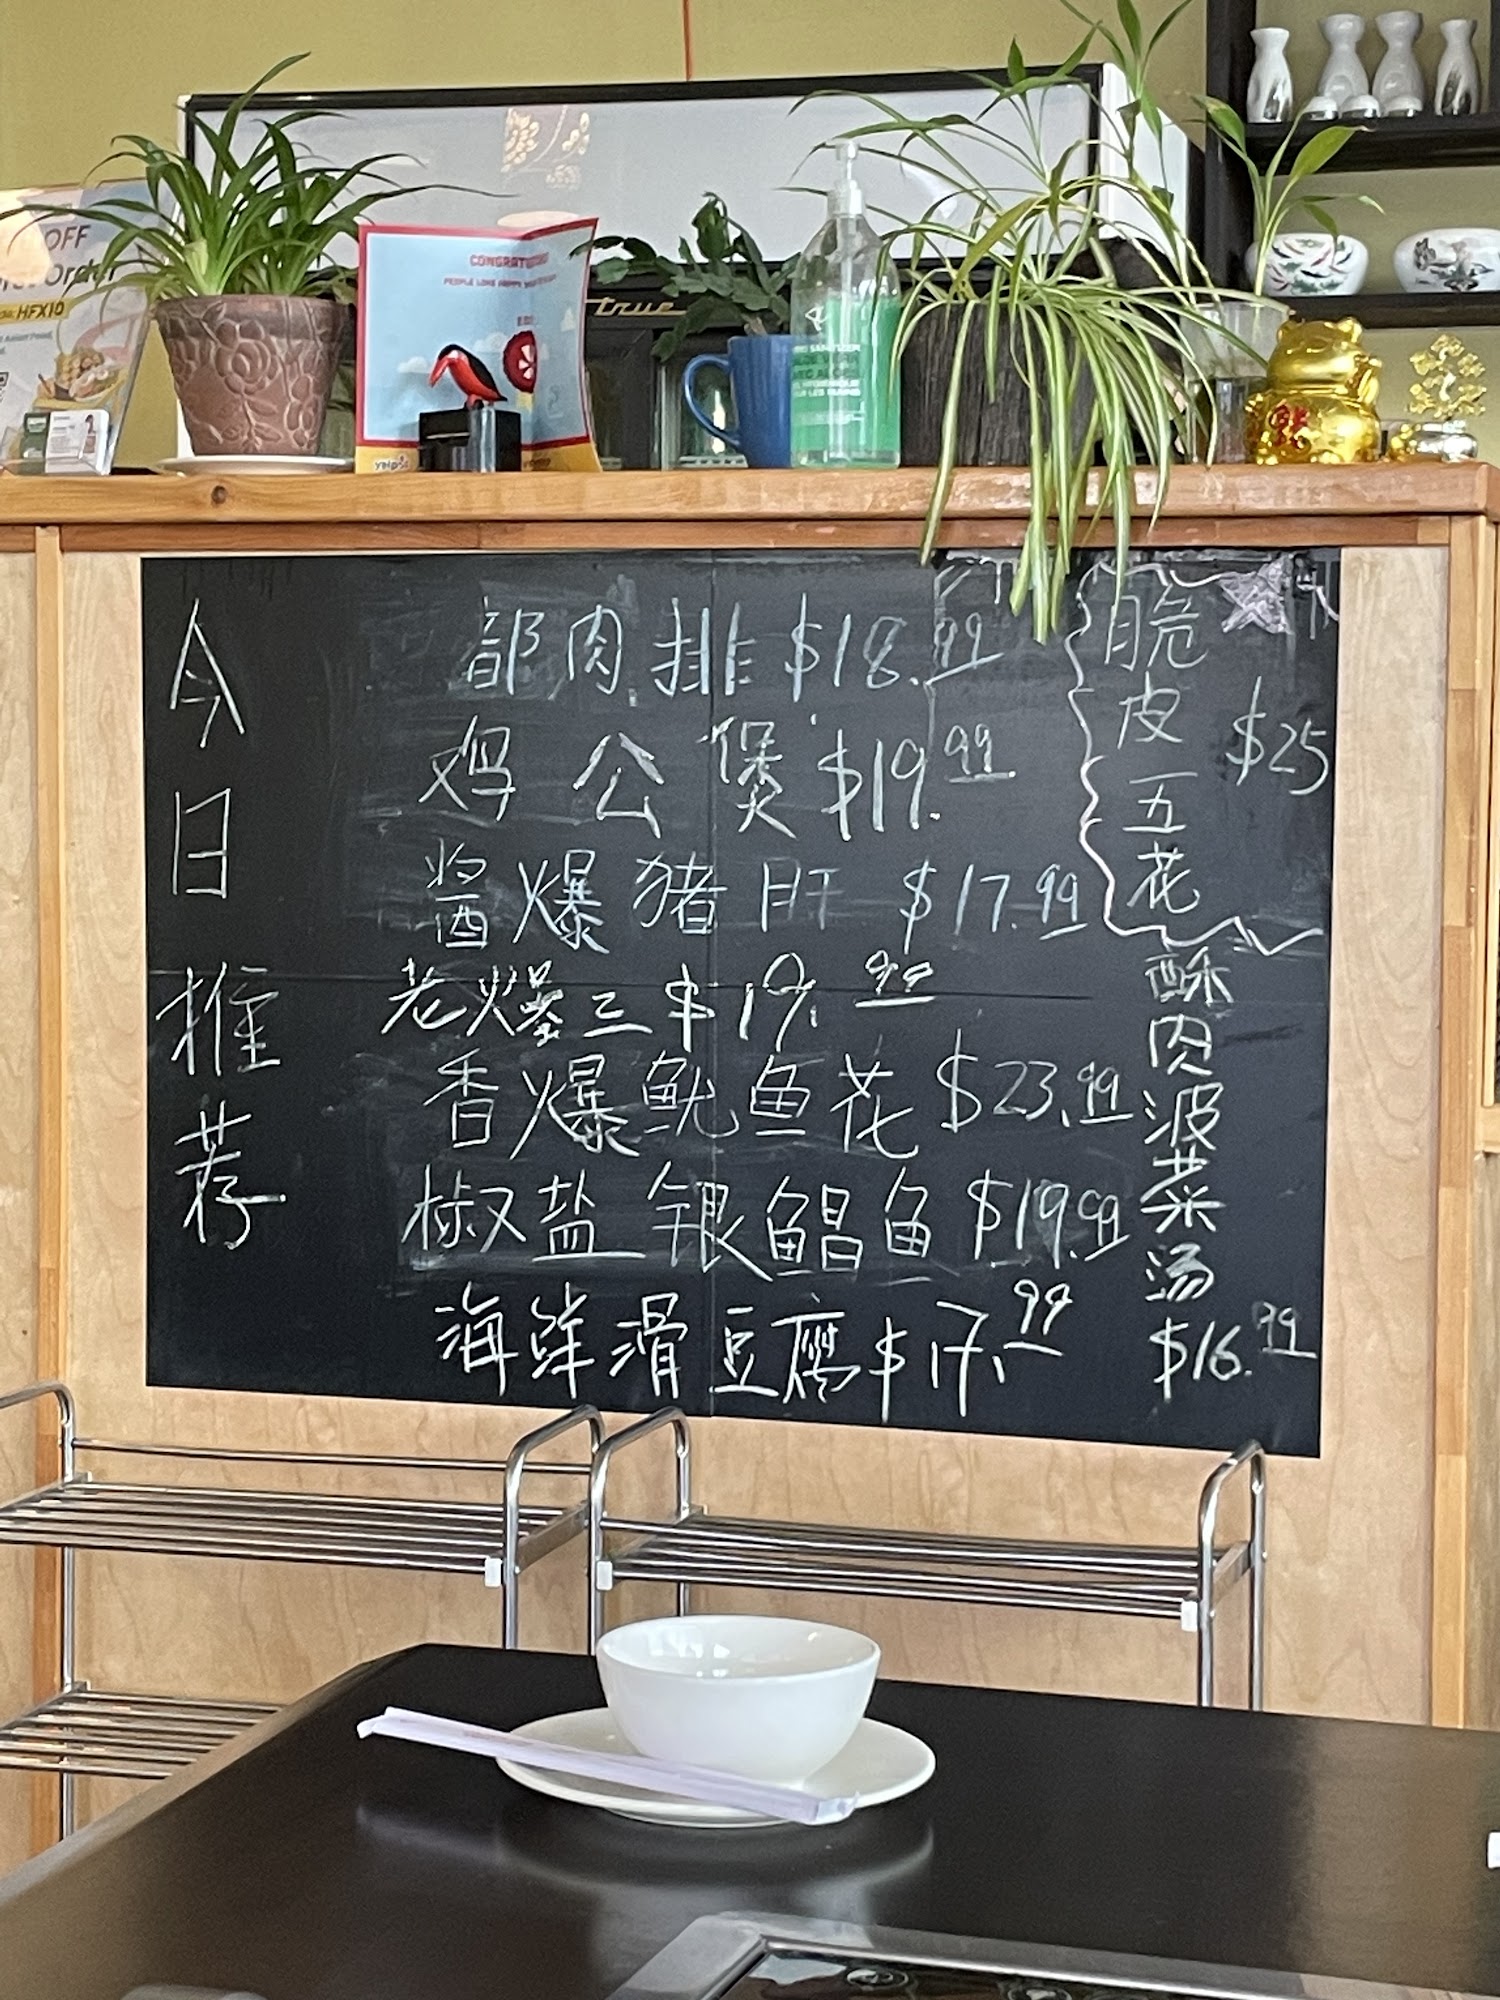 OFF
Order
HFX10
CONGRAT
PEOPLE LOVE
yelp
true
SANITIZER
财
今日推荐
都肉排 $18.99
鸡公煲 $19.99
酱爆猪肝 $17.99
老爆三 $19.99
香爆鱿鱼花 $23.99
椒盐银鲳鱼 $19.99
海鲜滑豆腐 $17.99
脆皮五花 $25
酥肉菠菜汤 $16.99